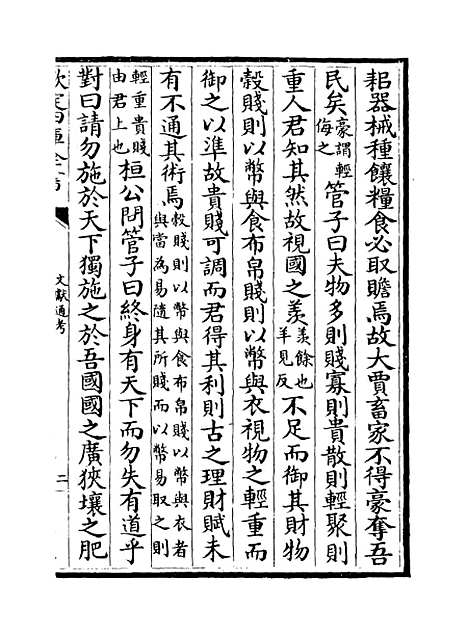 耜器械種饟糧食必取贍焉故大賈畜家不得豪奪吾
民矣豪謂輕侮之管子曰夫物多則賤寡則貴散則輕聚則
重人君知其然故視國之羨羨餘也羊見反不足而御其財物
穀賤則以幣與食布帛賤則以幣與衣視物之輕重而
御之以準故貴賤可調而君得其利則古之理財賦未
有不通其術焉穀賤則以幣與食布帛賤以幣與衣者與當為易隨其所賤而以幣易取之則
輕重貴賤由君上也桓公問管子曰終身有天下而勿失有道乎
對曰請勿施於天下獨施之於吾國國之廣狹壤之肥
欽定四庫全書
文獻通考
二